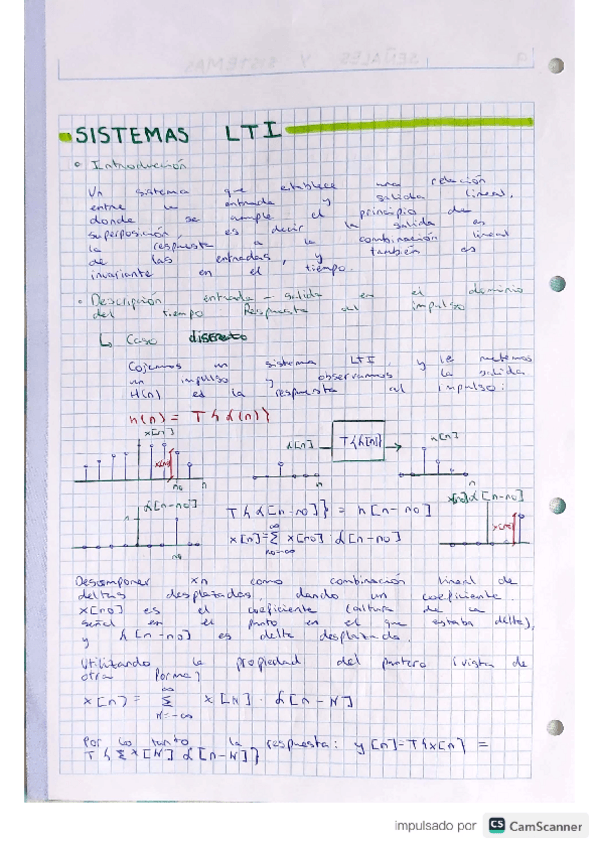 SISTEMAS LTI
• Introducción
Un sistema que establece una relación
entre la entrada y salida lineal,
donde se cumple el principio de
superposición, es decir la salida es
la respuesta a la combinación lineal
de las entradas, y también es
invariante en el tiempo.
• Descripción entrada - salida en el dominio
del tiempo. Respuesta al impulso
↳ Caso discreto
Cojamos un sistema LTI, y le metemos
un impulso y observamos la salida
H(n) es la respuesta al impulso:
h(n) = T{δ(n)}
x[n]
x[n0]
n0
n
δ[n]
T{δ[n]}
h[n]
n
n
δ[n-n0]
n0
T{δ[n-n0]} = h[n-n0]
x[n] = Σ x[n0] · δ[n-n0]
∞
n0=-∞
x[n0] δ[n-n0]
x[n0]
Descomponer xn como combinación lineal de
deltas desplazadas, dando un coeficiente.
x[n0] es el coeficiente (altura de la
señal en el punto en el que estaba delta),
y δ[n-n0] es delta desplazada.
Utilizando la propiedad del puntero (vista de
otra forma)
x[n] = Σ x[N] · δ[n-N]
∞
N=-∞
Por lo tanto la respuesta: y[n]=T{x[n]} =
T{Σ x[N] δ[n-N]}
impulsado por CS CamScanner